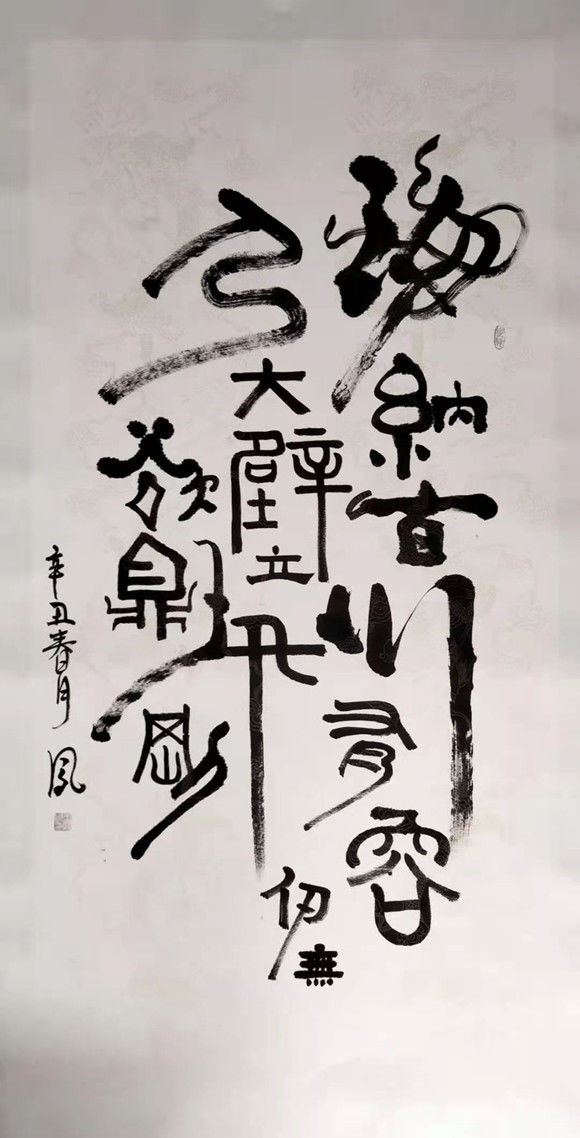 海納百川有容
乃大壁立千仞無
欲則剛
辛丑春月 凤